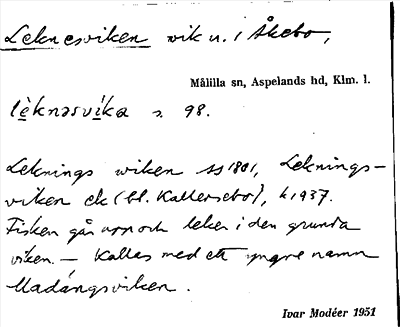 Leknesviken vik n. i Åkebo,
Målilla sn, Aspelands hd, Klm. l.
lèknəsvi̇ka s. 98.
Leknings wiken ss 1801, Leknings-
viken ek (bl. Kallersebo), k 1937.
Fisken går upp och leker i den grunda
viken. – Kallas med ett yngre namn
Madängsviken.
Ivar Modéer 1951